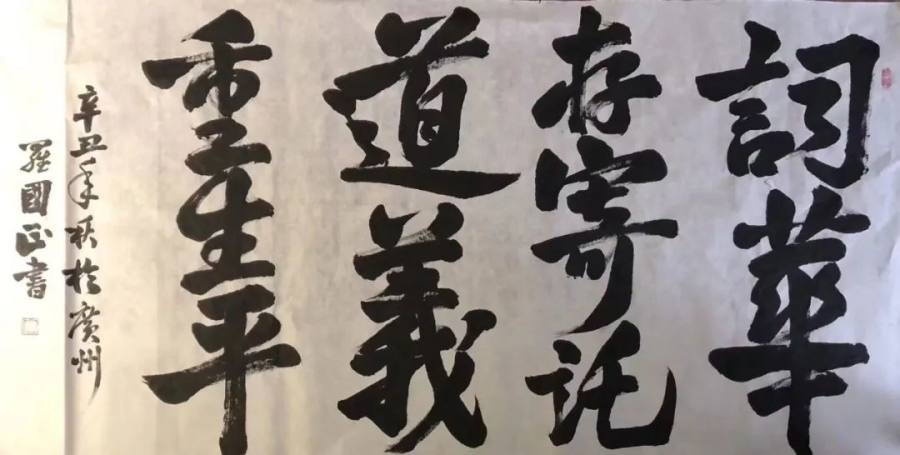 詞華
存寄託
道義
重生平
辛丑年秋於廣州
羅國正書